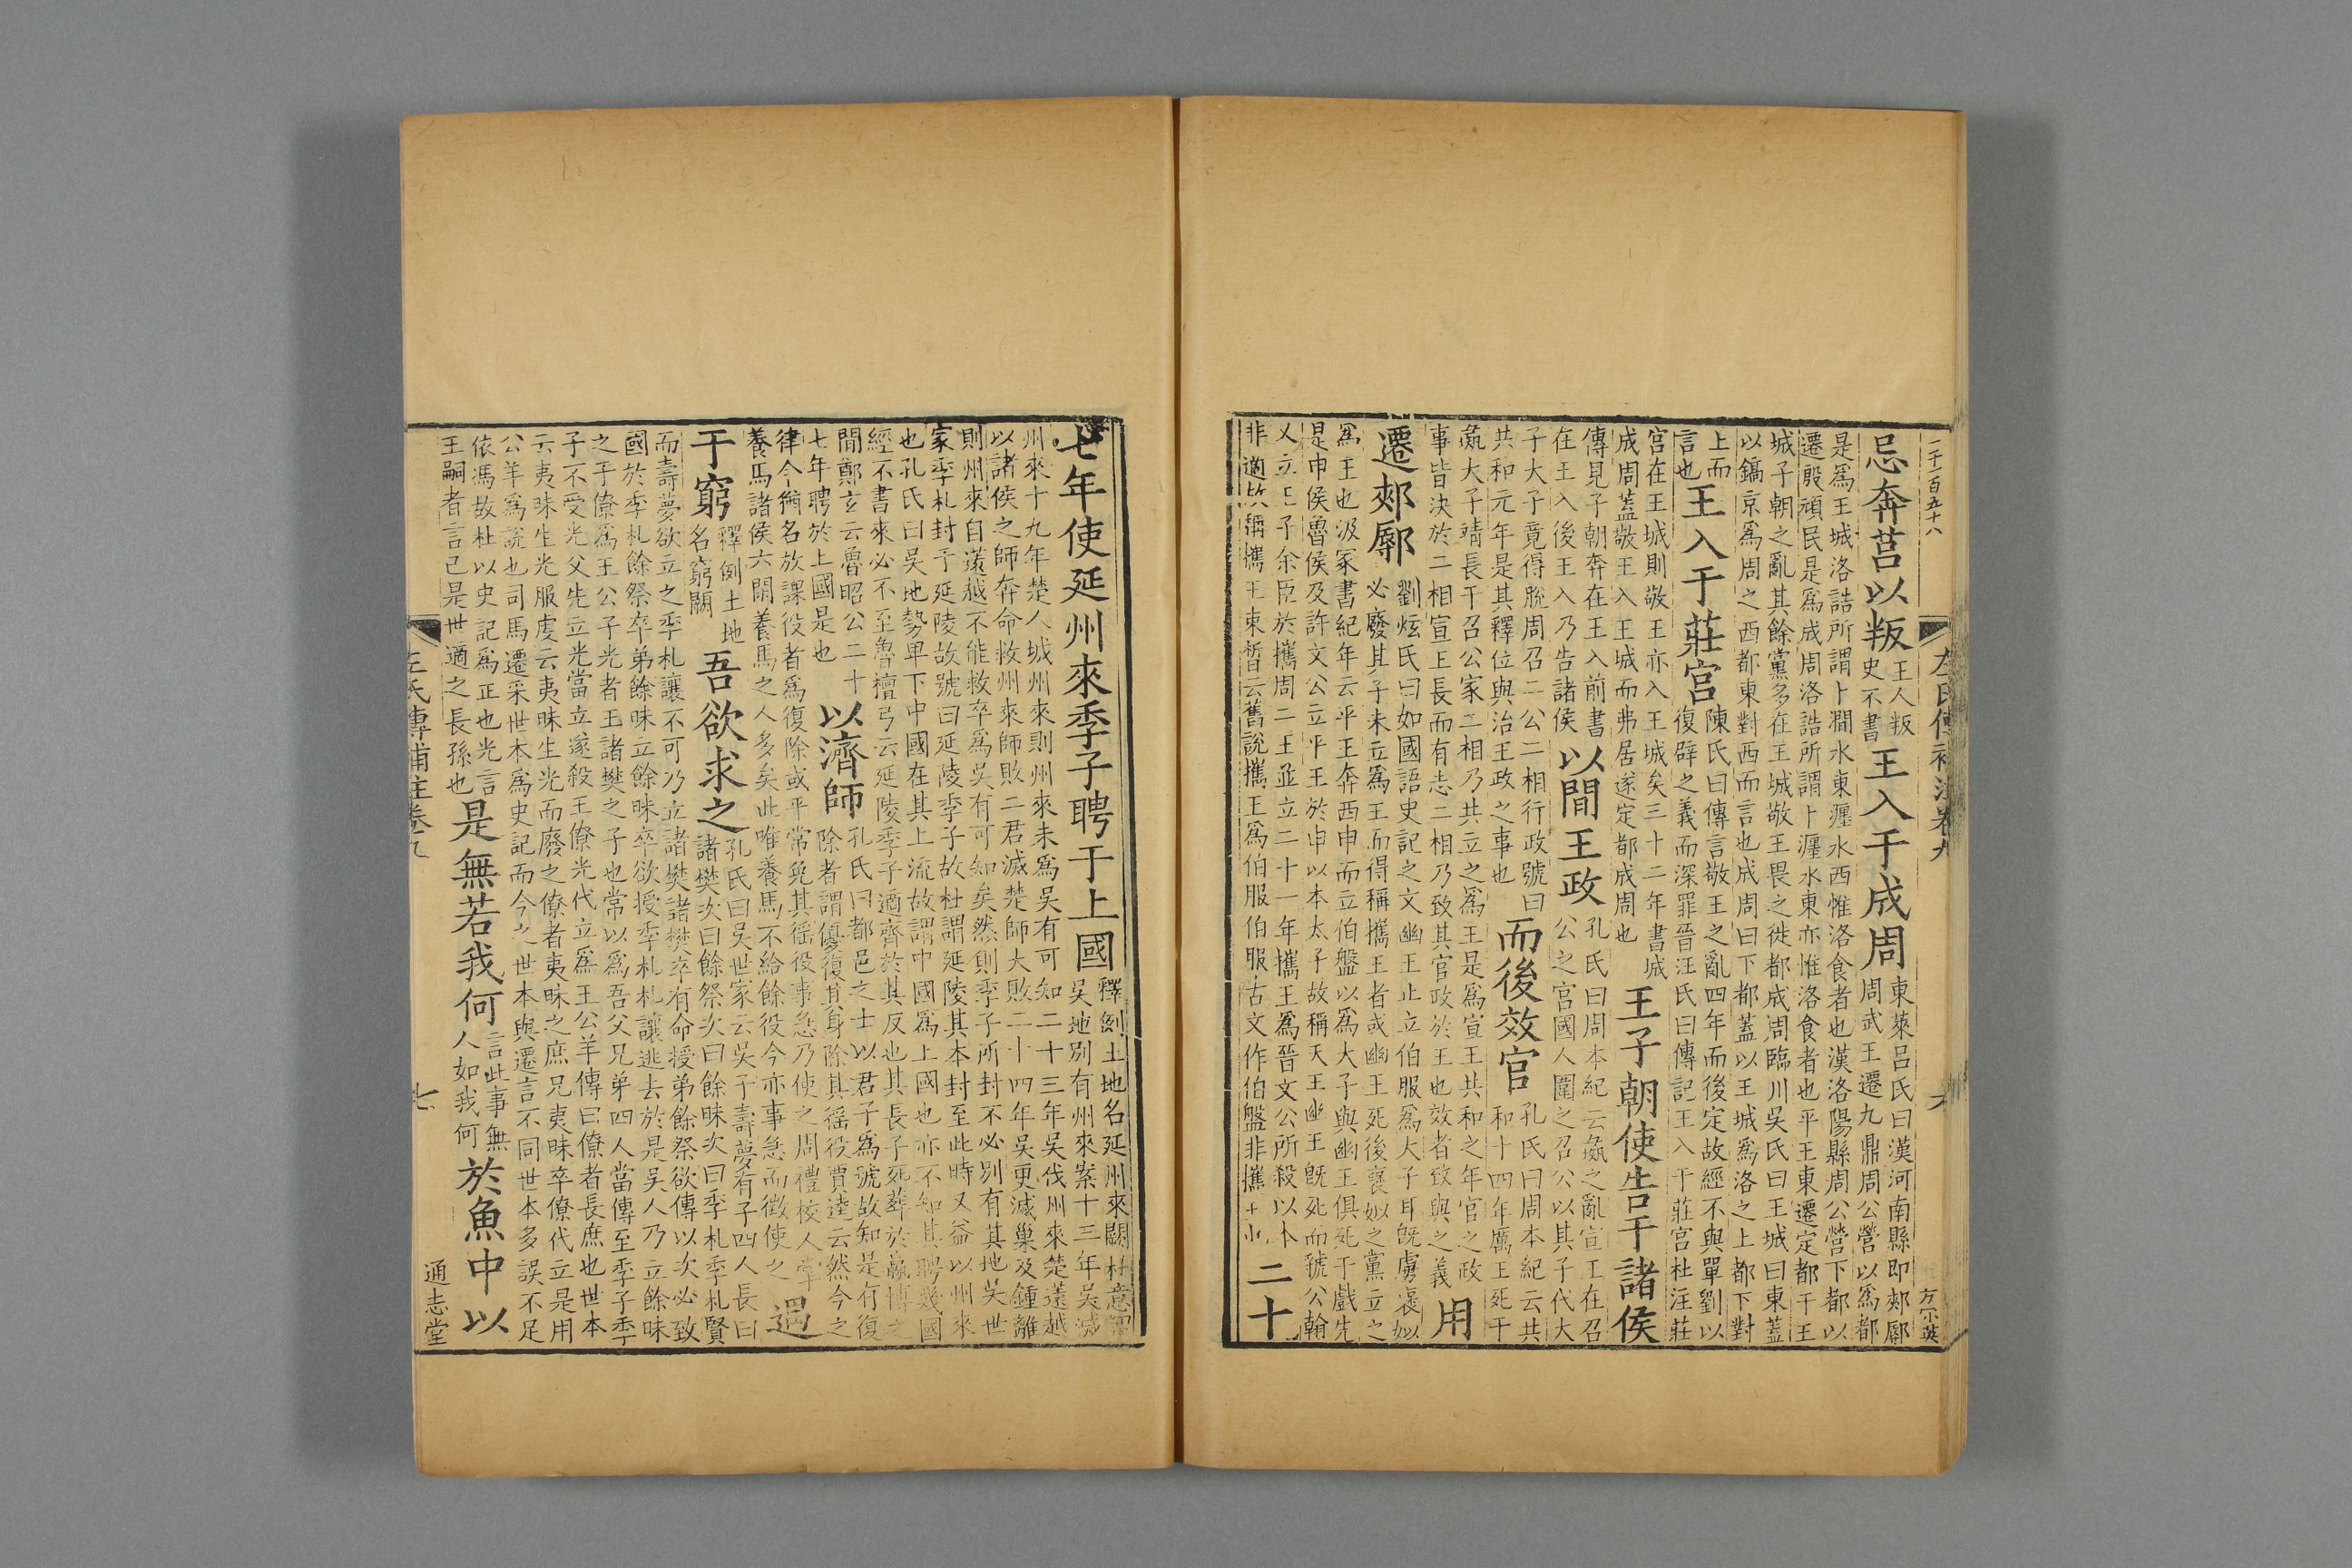 二千一百五十八
左氏傳補注卷九
六
忌奔莒以叛
王人叛
史不書
王入于成周
東萊呂氏曰漢河南縣即郟鄏
周武王遷九鼎周公營以為都
是為王城洛誥所謂卜澗水東瀍水西惟洛食者也漢洛陽縣周公營下都以
遷殷頑民是為成周洛誥所謂卜瀍水東亦惟洛食者也平王東遷定都于王
城子朝之亂其餘黨多在王城敬王畏之徙都成周臨川吳氏曰王城曰東蓋
以鎬京為周之西都東對西而言也成周曰下都蓋以王城為洛之上都下對
上而
言也
王入于莊宮
陳氏曰傳言敬王之亂四年而後定故經不與單劉以
復辟之義而深罪晉汪氏曰傳記王入于莊宮杜注莊
宮在王城則敬王亦入王城矣三十二年書城
成周蓋敬王入王城而弗居遂定都成周也
王子朝使告于諸侯
傳見子朝奔在王入前書
在王入後王入乃告諸侯
以間王政
孔氏曰周本紀云彘之亂宣王在召
公之宮國人圍之召公以其子代大
子大子竟得脫周召二公二相行政號曰
共和元年是其釋位與治王政之事也
而後效官
孔氏曰周本紀云共
和十四年厲王死于
彘大子靖長于召公家二相乃共立之為王是為宣王共和之年官之政
事皆決於二相宣王長而有志二相乃致其官政於王也效者致與之義
用
遷郟鄏
劉炫氏曰如國語史記之文幽王止立伯服為大子耳既虜褒姒
必廢其子未立為王而得稱攜王者或幽王死後褒姒之黨立之
為王也汲冢書紀年云平王奔西申而立伯盤以為大子與幽王俱死于戲先
是申侯魯侯及許文公立平王於申以本太子故稱天王幽王既死而虢公翰
又立王子余臣於攜周二王並立二十一年攜王為晉文公所殺以本
非適故稱攜王束皙云舊說攜王為伯服伯服古文作伯盤非攜王
二十
七年使延州來季子聘于上國
釋例土地名延州來闕杜意謂
吳地別有州來案十三年吳滅
州來十九年楚人城州來則州來未為吳有可知二十三年吳伐州來楚薳越
以諸侯之師奔命救州來師敗二君滅楚師大敗二十四年吳更滅巢及鍾離
則州來自薳越不能救卒為吳有可知矣然則季子所封不必別有其地吳世
家季札封于延陵故號曰延陵季子故杜謂延陵其本封至此時又益以州來
也孔氏曰吳地勢卑下中國在其上流故謂中國為上國也亦不知其聘幾國
經不書來必不至魯檀弓云延陵季子適齊於其反也其長子死葬於嬴博之
間鄭玄云魯昭公二十
七年聘於上國是也
以濟師
孔氏曰都邑之士以君子為號故知是有復
除者謂優復其身除其徭役賈逵云然今之
律令猶名放課役者為復除或平常免其徭役事急乃使之周禮校人掌
養馬諸侯六閑養馬之人多矣此唯養馬不給餘役今亦事急而徵使之
遇
于窮
釋例土地
名窮闕
吾欲求之
孔氏曰吳世家云吳子壽夢有子四人長曰
諸樊次曰餘祭次曰餘昧次曰季札季札賢
而壽夢欲立之季札讓不可乃立諸樊諸樊卒有命授弟餘祭欲傳以次必致
國於季札餘祭卒弟餘昧立餘昧卒欲授季札札讓逃去於是吳人乃立餘昧
之子僚為王公子光者王諸樊之子也常以為吾父兄弟四人當傳至季子季
子不受光父先立光當立遂殺王僚光代立為王公羊傳曰僚者長庶也世本
云夷昧生光服虔云夷昧生光而廢之僚者夷昧之庶兄夷昧卒僚代立是用
公羊為說也司馬遷采世本為史記而今之世本與遷言不同世本多誤不足
依馮故杜以史記為正也光言
王嗣者言己是世適之長孫也
是無若我何
言此事無
人如我何
於魚中以
左氏傳補注卷九
七
通志堂